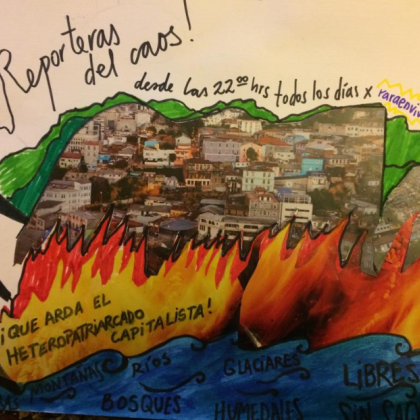 ¡Reporteras
del caos!
desde las 22⁰⁰ hrs todos los días x
¡QUE ARDA EL
HETEROPATRIARCADO
CAPITALISTA!
MONTAÑAS RÍOS GLACIARES LIBRES
BOSQUES HUMEDALES SIN